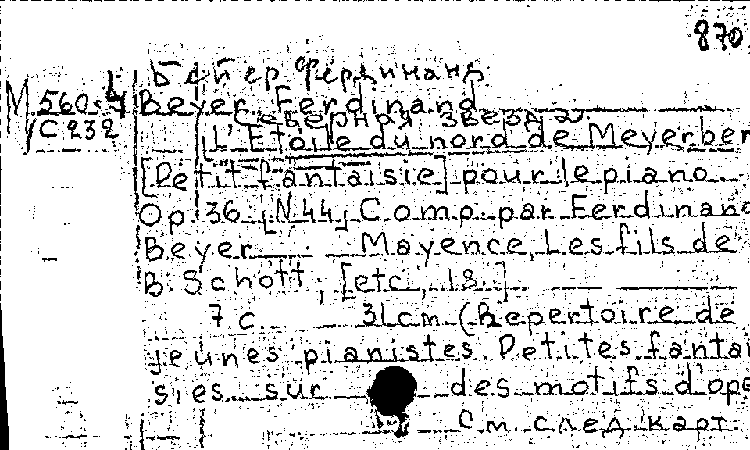 870
Бейер Фердинанд
М 560.4 Beyer Ferdinand
Северная звезда
C 232
L'Etoile du nord de Meyerber
[Petit fantaisie] pour le piano
Op. 36 [N 44] Comp. par Ferdinand
Beyer. Mayence, Les fils de
B. Schott, [etc, 18 ]
7 c. 31 cm (Repertoire de
jeunes pianistes. Petites fantai
sies sur des motifs d'ope
См. след. карт.